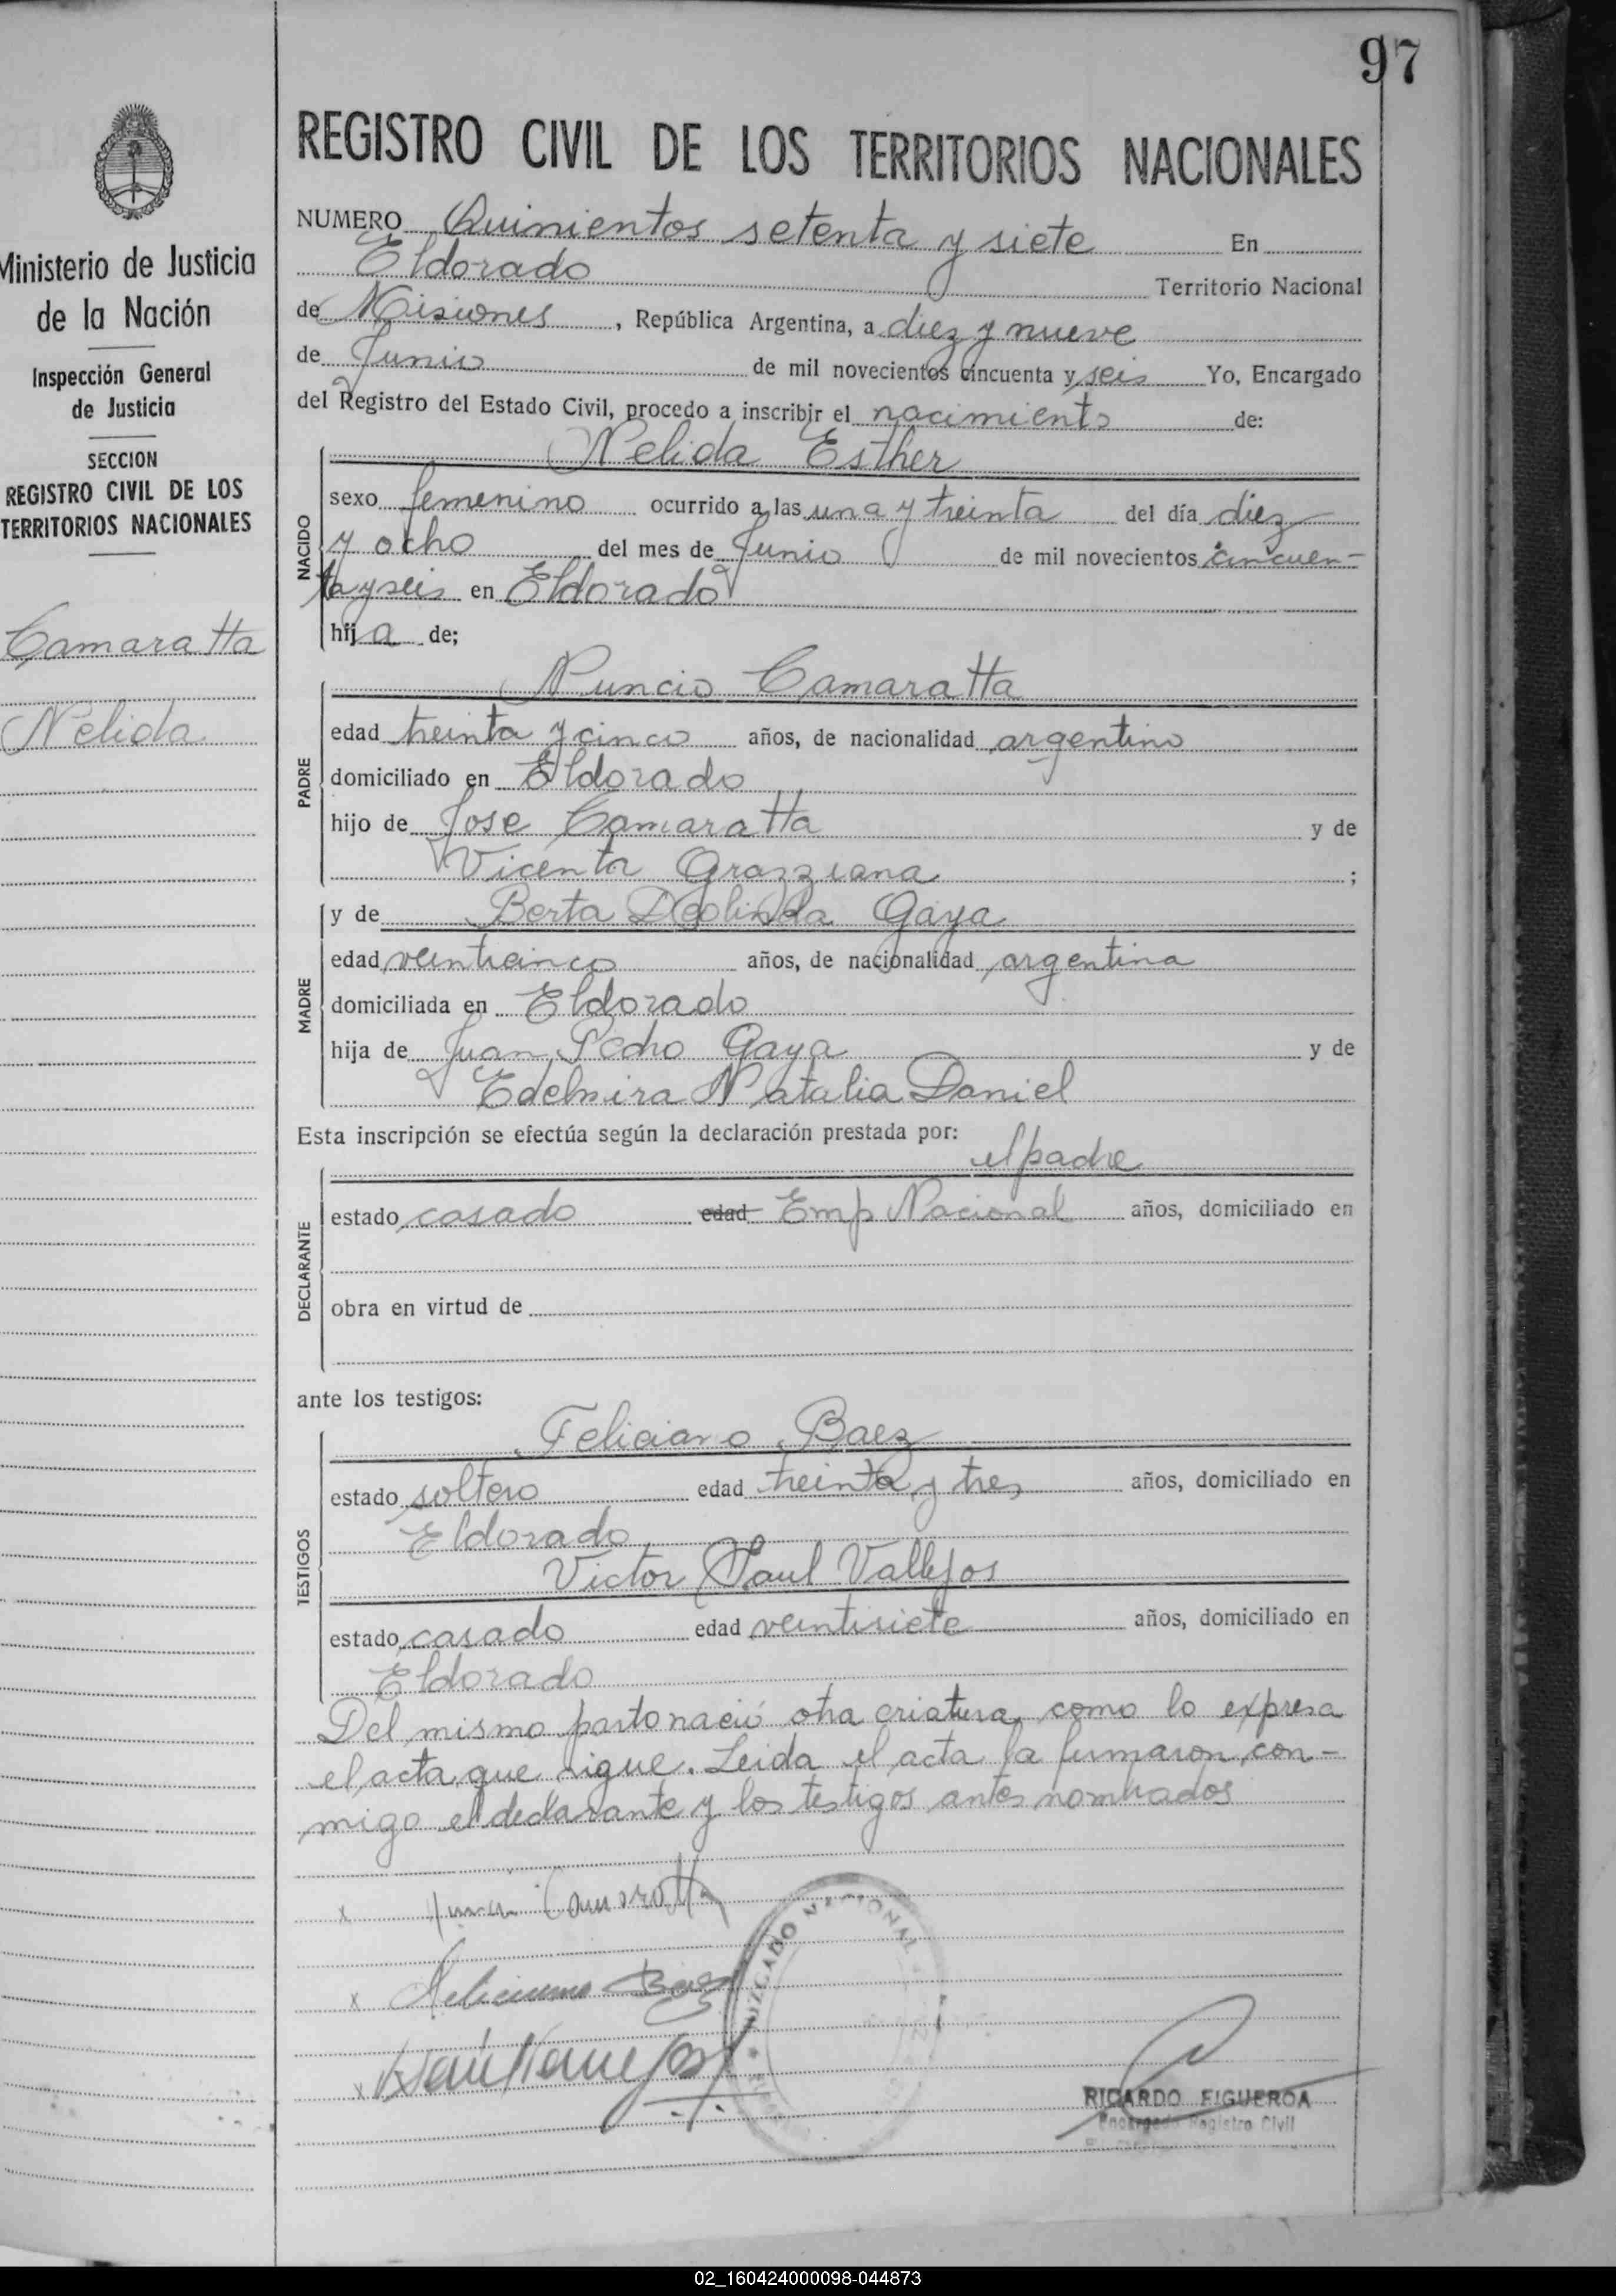 97
REGISTRO CIVIL DE LOS TERRITORIOS NACIONALES
Ministerio de Justicia
de la Nación
Inspección General
de Justicia
SECCION
REGISTRO CIVIL DE LOS
TERRITORIOS NACIONALES
Camaratta
Nelida
NUMERO Quinientos setenta y siete En
Eldorado Territorio Nacional
de Misiones, República Argentina, a diez y nueve
de Junio de mil novecientos cincuenta y seis Yo, Encargado
del Registro del Estado Civil, procedo a inscribir el nacimiento de:
NACIDO
Nelida Esther
sexo femenino ocurrido a las una y treinta del día diez
y ocho del mes de Junio de mil novecientos cincuen-
ta y seis en Eldorado
hija de;
PADRE
Nuncio Camaratta
edad treinta y cinco años, de nacionalidad argentino
domiciliado en Eldorado
hijo de Jose Camaratta y de
Vicenta Grazziana ;
MADRE
y de Berta Deolinda Gaya
edad veinticinco años, de nacionalidad argentina
domiciliada en Eldorado
hija de Juan Pedro Gaya y de
Edelmira Natalia Daniel
Esta inscripción se efectúa según la declaración prestada por:
DECLARANTE
el padre
estado casado edad Emp Nacional años, domiciliado en
obra en virtud de
ante los testigos:
TESTIGOS
Feliciano Baez
estado soltero edad treinta y tres años, domiciliado en
Eldorado
Victor Saul Vallejos
estado casado edad veintisiete años, domiciliado en
Eldorado
Del mismo parto nació otra criatura, como lo expresa
el acta que sigue. Leida el acta la firmaron con-
migo el declarante y los testigos antes nombrados
x Camaratta
x Feliciano Baez
x
JUZGADO NACIONAL
RICARDO FIGUEROA
Encargado Registro Civil
02_160424000098-044873